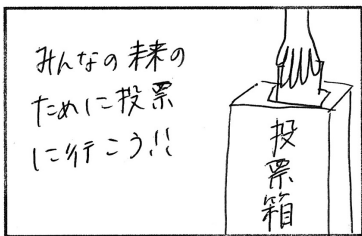 みんなの未来の
ために投票
に行こう!!
投票箱